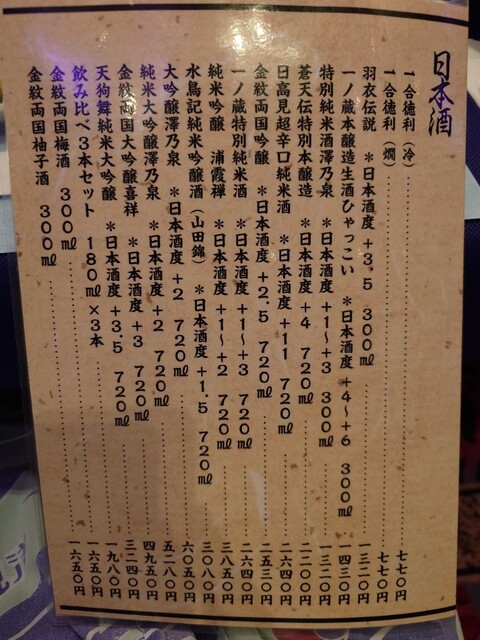 日本酒
一合徳利（冷）…………七七〇円
一合徳利（燗）…………七七〇円
羽衣伝説 ＊日本酒度 +3.5 300㎖…………一三二〇円
一ノ蔵本醸造生酒ひゃっこい ＊日本酒度 +4~+6 300㎖…………一四三〇円
特別純米酒澤乃泉 ＊日本酒度 +1~+3 300㎖…………一三二〇円
蒼天伝特別本醸造 ＊日本酒度 +4 720㎖…………二二〇〇円
日高見超辛口純米酒 ＊日本酒度 +11 720㎖…………二六四〇円
金紋両国吟醸 ＊日本酒度 +2.5 720㎖…………二五三〇円
一ノ蔵特別純米酒 ＊日本酒度 +1~+3 720㎖…………二六四〇円
純米吟醸 浦霞禅 ＊日本酒度 +1~+2 720㎖…………三八五〇円
水鳥記純米吟醸酒（山田錦） ＊日本酒度 +1.5 720㎖…………三〇八〇円
大吟醸澤乃泉 ＊日本酒度 +2 720㎖…………六〇五〇円
純米大吟醸澤乃泉 ＊日本酒度 +2 720㎖…………五二八〇円
金紋両国大吟醸喜祥 ＊日本酒度 +3 720㎖…………四九五〇円
天狗舞純米大吟醸 ＊日本酒度 +3.5 720㎖…………三二四〇円
飲み比べ3本セット 180㎖×3本…………一九八〇円
金紋両国梅酒 300㎖…………一六五〇円
金紋両国柚子酒 300㎖…………一六五〇円